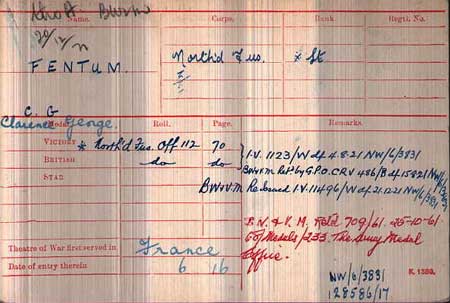 Name. Corps. Rank Regtl. No.
FENTUM. North'd Fus. * Lt
C. G
Clarence George
Medal. Roll. Page. Remarks.
VICTORY * North'd Fus. Off 112 70 I.V. 1123/W d/ 4.8.21 NW/6/3831
BRITISH do do BWM Ret by G.P.O. CRV 486/B d/ 15821 NW/6/3831
STAR BW&VM Re-Issued I.V. 11496/W d/ 21.12.21 NW/6/3831
B. W & V. M. Retd 709/61 25-10-61
The Army Medal
Office.
Theatre of War first served in France
Date of entry therein 6 16
NW/6/3831
128586/17
K. 1380.